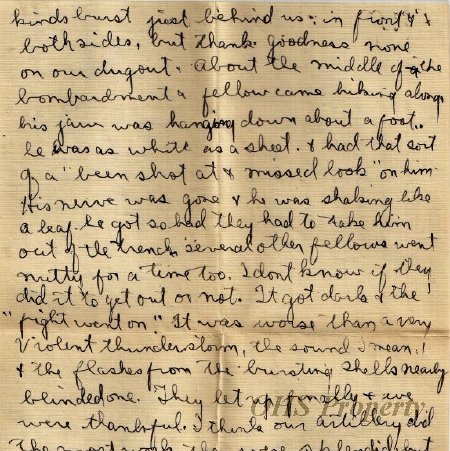 kinds burst just behind us: in front & +
both sides, but thank goodness none
on our dugout. About the middle of the
bombardment a fellow came hiking along
his jaw was hanging down about a foot..
he was as white as a sheet. & had that sort
of a "been shot at & missed look" on him
His nerve was gone & he was shaking like
a leaf. he got so bad they had to take him
out of the trench. several other fellows went
nutty for a time too. I dont know if they
did it to get out or not. It got dark & the
"fight went on." It was worse than a very
violent thunderstorm, the sound I mean!
& the flashes from the bursting shells nearly
blinded one. They let up finally & we
were thankful. I think our artillery did
the most work they were splendid but
GHS Property